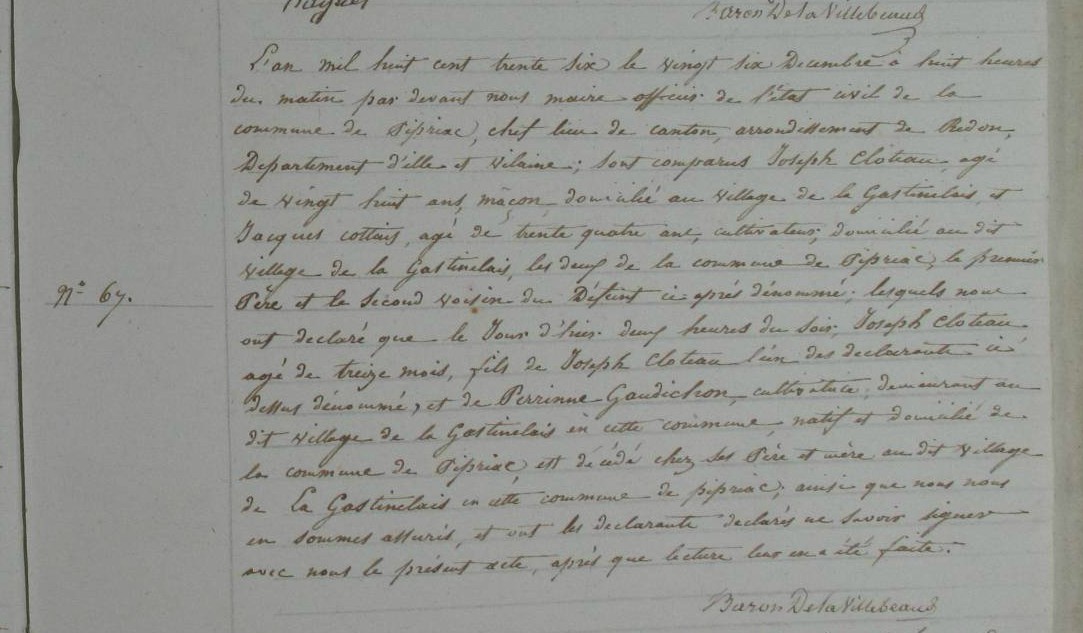 Baron De la Villebeaud
L'an mil huit cent trente six le vingt six Decembre à huit heures
du matin par devant nous maire officier de l'état civil de la
commune de Pipriac, chef lieu de canton, arrondissement de Redon,
Departement d'ille et vilaine; sont comparus Joseph Cloteau agé
de vingt huit ans, maçon domicilié au village de la Gastinelais, et
Jacques cottais, agé de trente quatre ans, cultivateur, domicilié au dit
village de la Gastinelais, les deux de la commune de Pipriac, le premier
Père et le second voisin du Défunt ci après dénommé; lesquels nous
ont declaré que le Jour d'hier deux heures du soir, Joseph Cloteau
agé de treize mois, fils de Joseph Cloteau l'un des declarants ci
dessus dénommé, et de Perrinne Gaudichon, cultivatrice, demeurant au
Nº 67.
dit village de la Gastinelais en cette commune, natif et domicilié de
la commune de Pipriac, est décédé chez ses Père et mère au dit village
de La Gastinelais en cette commune de pipriac, ainsi que nous nous
en sommes assurés, et ont les declarants declarés ne savoir signer
avec nous le présent acte, après que lecture leur en a été faite.
Baron De la Villebeaud